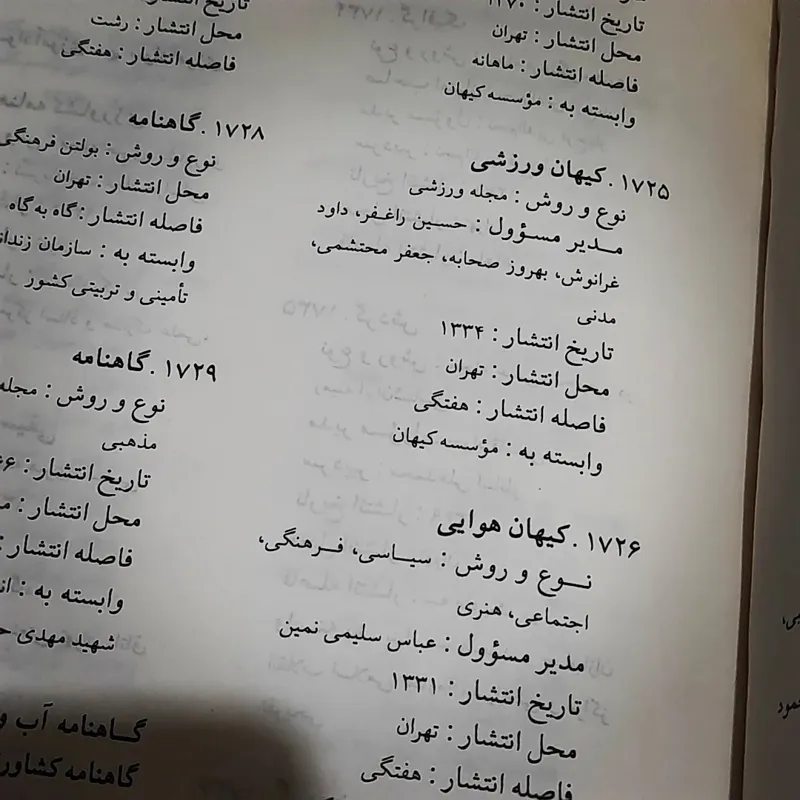 تاریخ انتشار : ۱۳۷۰
محل انتشار : تهران
فاصله انتشار : ماهانه
وابسته به : مؤسسه کیهان
۱۷۲۵ . کیهان ورزشی
نوع و روش : مجله ورزشی
مـدیر مسـؤول : حسـین راغـفر، داود
غرانوش، بهروز صحابه، جعفر محتشمی،
مدنی
تاریخ انتشار : ۱۳۳۴
محل انتشار : تهران
فاصله انتشار : هفتگی
وابسته به : مؤسسه کیهان
۱۷۲۶ . کیهان هوایی
نـوع و روش : سیـاسی، فـرهنگی،
اجتماعی، هنری
مدیر مسؤول : عباس سلیمی نمین
تاریخ انتشار : ۱۳۳۱
محل انتشار : تهران
فاصله انتشار : هفتگی
تاریخ انتشار :
محل انتشار : رشت
فاصله انتشار : هفتگی
۱۷۲۸ . گاهنامه
نوع و روش : بولتن فرهنگی
محل انتشار : تهران
فاصله انتشار : گاه به گاه
وابسته به : سازمان
تأمینی و تربیتی کشور
۱۷۲۹ . گاهنامه
نوع و روش : مجله
مذهبی
تاریخ انتشار :
محل انتشار :
فاصله انتشار :
وابسته به :
شهید مهدی
گـاهنامه آب و
گاهنامه